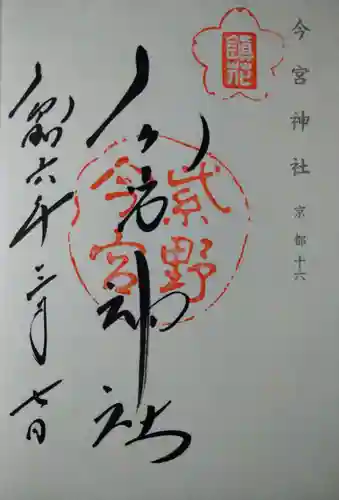 今宮神社 京都十六
鎮花
紫野
今宮
今宮神社
令和六年三月七日